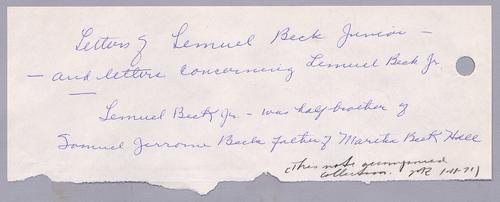 Letters of Lemuel Beck Junior –
– and letters concerning Lemuel Beck Jr
Lemuel Beck Jr. – was half brother of
Samuel Jerrome Beck father of Martha Beck Hall
(This note accompanied
collection. 1-11-71)